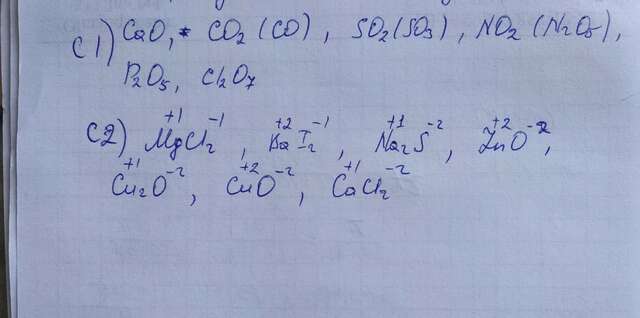 C1) CaO, CO₂ (CO), SO₂(SO₃), NO₂ (N₂O₅),
P₂O₅, Cl₂O₇
C2) Mg⁺¹Cl₂⁻¹, Ba⁺²I₂⁻¹, Na₂⁺¹S⁻², Zn⁺²O⁻²,
Cu₂⁺¹O⁻², Cu⁺²O⁻², Ca⁺¹Cl₂⁻²